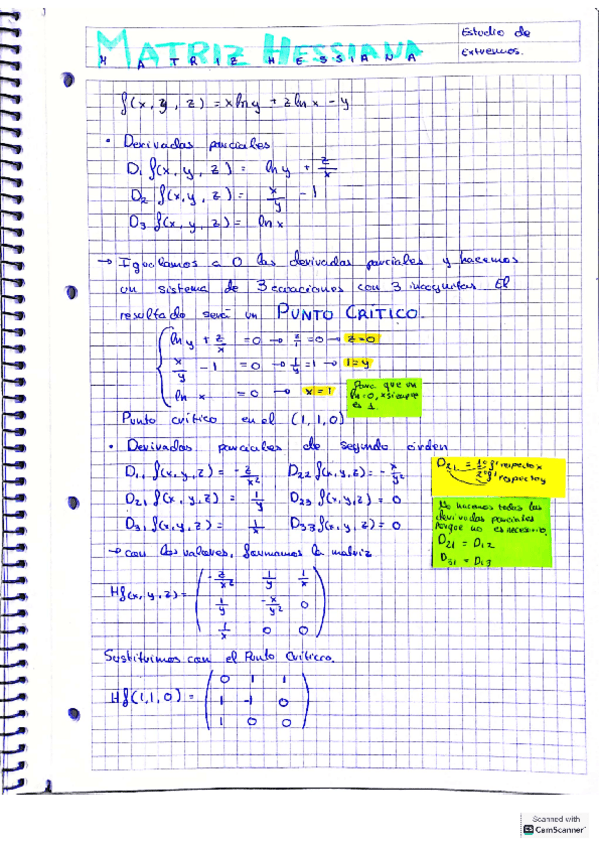 MATRIZ HESSIANA
MATRIZ HESSIANA
Estudio de
Extremos.
f(x, y, z) = x ln y + z ln x - y
• Derivadas parciales
D₁ f(x, y, z) = ln y + z/x
D₂ f(x, y, z) = x/y - 1
D₃ f(x, y, z) = ln x
→ Igualamos a 0 las derivadas parciales y hacemos
un sistema de 3 ecuaciones con 3 incognitas. El
resultado será un PUNTO CRÍTICO.
ln y + z/x = 0 → z/1 = 0 → z = 0
x/y - 1 = 0 → 1/y = 1 → 1 = y
ln x = 0 → x = 1
Para que un
ln = 0, x siempre
es 1.
Punto crítico en el (1, 1, 0)
• Derivadas parciales de segundo orden
D₁₁ f(x, y, z) = - z/x² D₂₂ f(x, y, z) = - x/y²
D₂₁ f(x, y, z) = 1/y D₂₃ f(x, y, z) = 0
D₃₁ f(x, y, z) = 1/x D₃₃ f(x, y, z) = 0
D₂₁ = 1º f' respecto x
2º f' respecto y
No hacemos todas las
derivadas parciales
porque no es necesario.
D₂₁ = D₁₂
D₃₁ = D₁₃
→ con los valores, formamos la matriz
Hf(x, y, z) =
- z/x² 1/y 1/x
1/y - x/y² 0
1/x 0 0
Sustituimos con el Punto Crítico.
Hf(1, 1, 0) =
0 1 1
1 -1 0
1 0 0
Scanned with
CS CamScanner